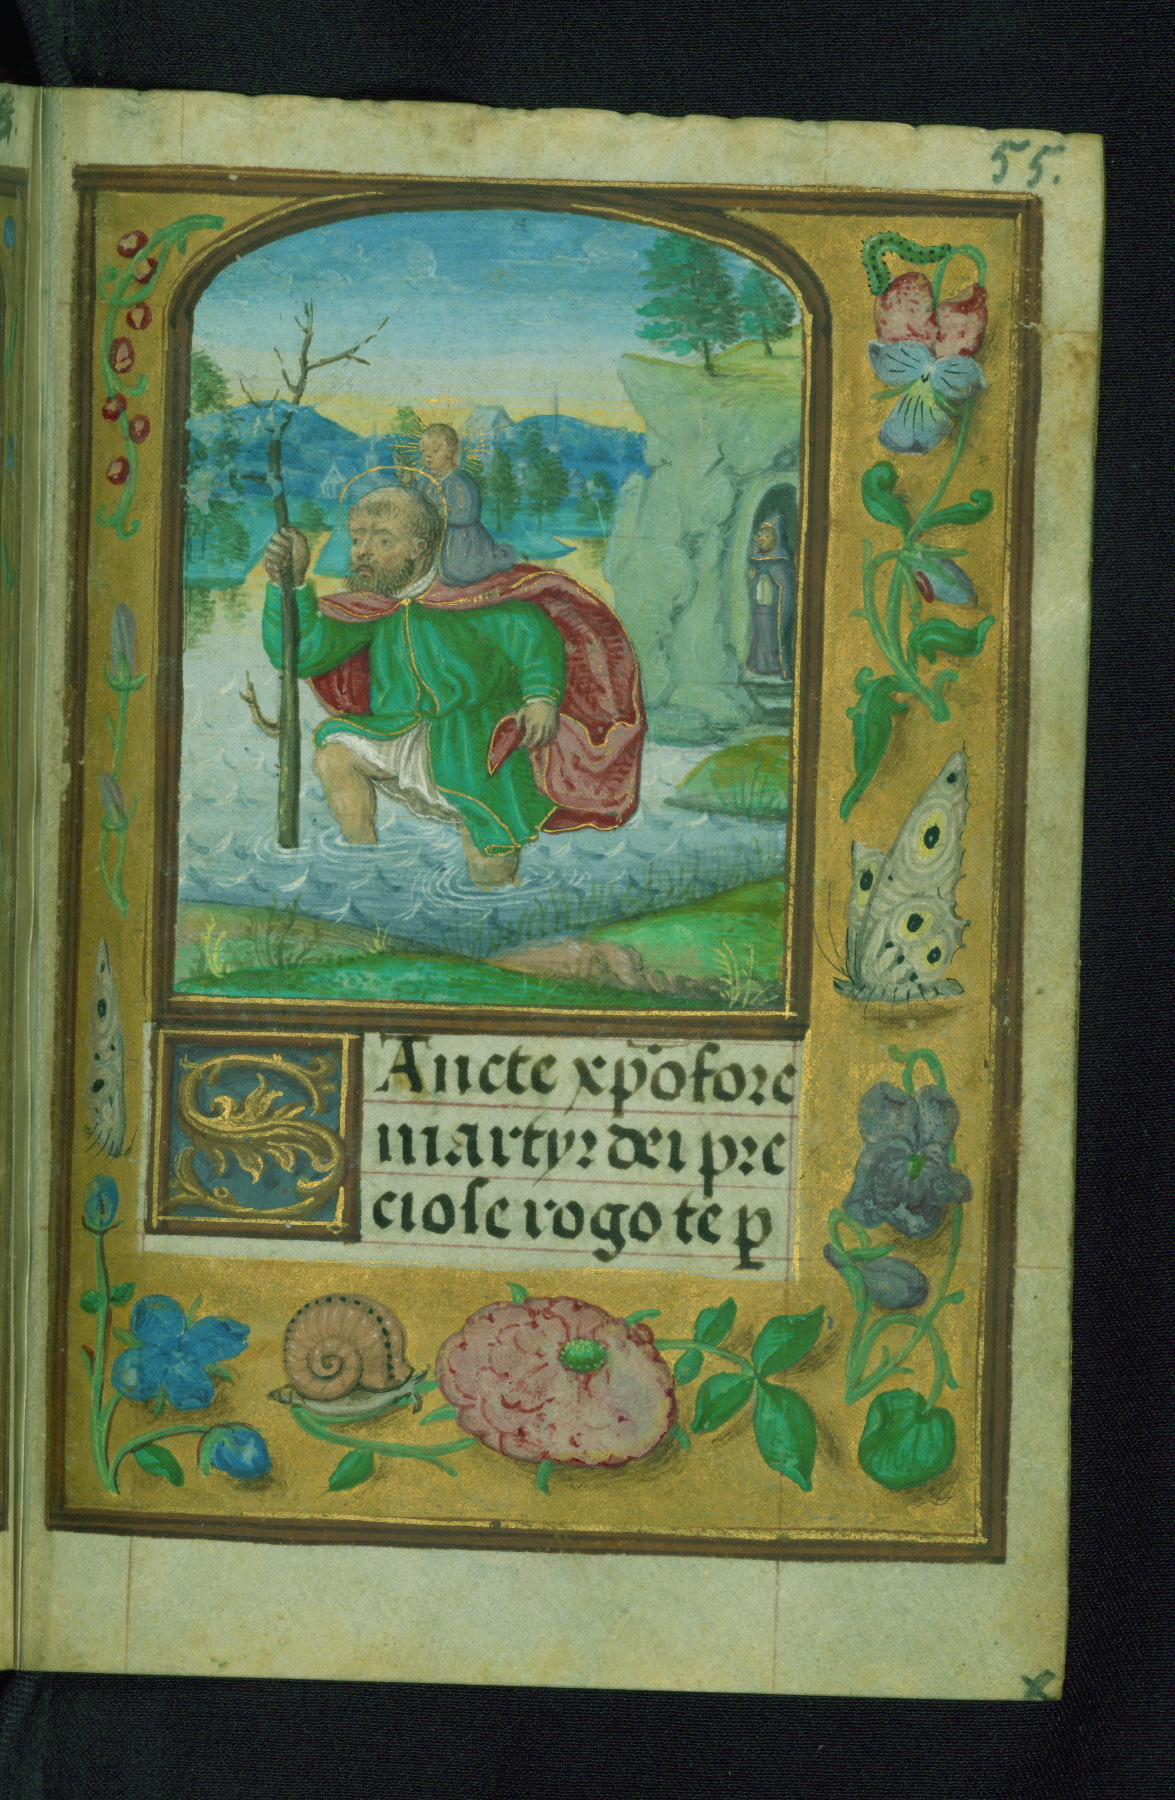 55.
SAncte xp̄ofore
martyr dei pre
ciose rogo te p̱
x